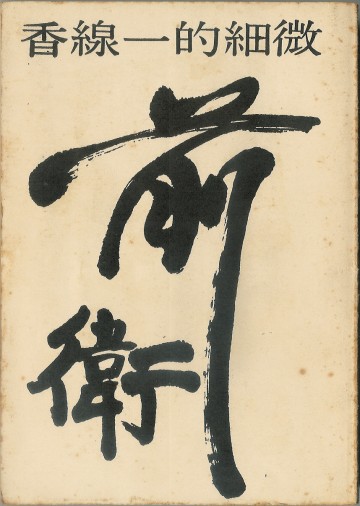 微細的一線香
前衛